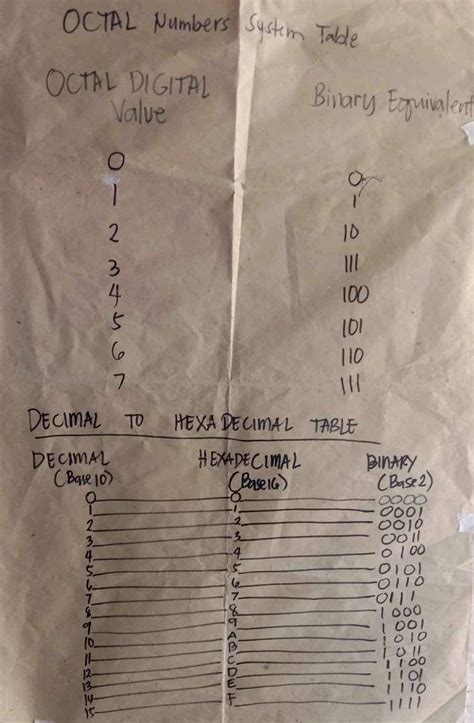 OCTAL Numbers System Table
OCTAL DIGITAL Binary Equivalent
Value
0 0
1 1
2 10
3 111
4 100
5 101
6 110
7 111
DECIMAL TO HEXADECIMAL TABLE
DECIMAL HEXADECIMAL BINARY
(Base 10) (Base 16) (Base 2)
0 0 0000
1 1 0001
2 2 0010
3 3 0011
4 4 0100
5 5 0101
6 6 0110
7 7 0111
8 8 1000
9 9 1001
10 A 1010
11 B 1011
12 C 1100
13 D 1101
14 E 1110
15 F 1111